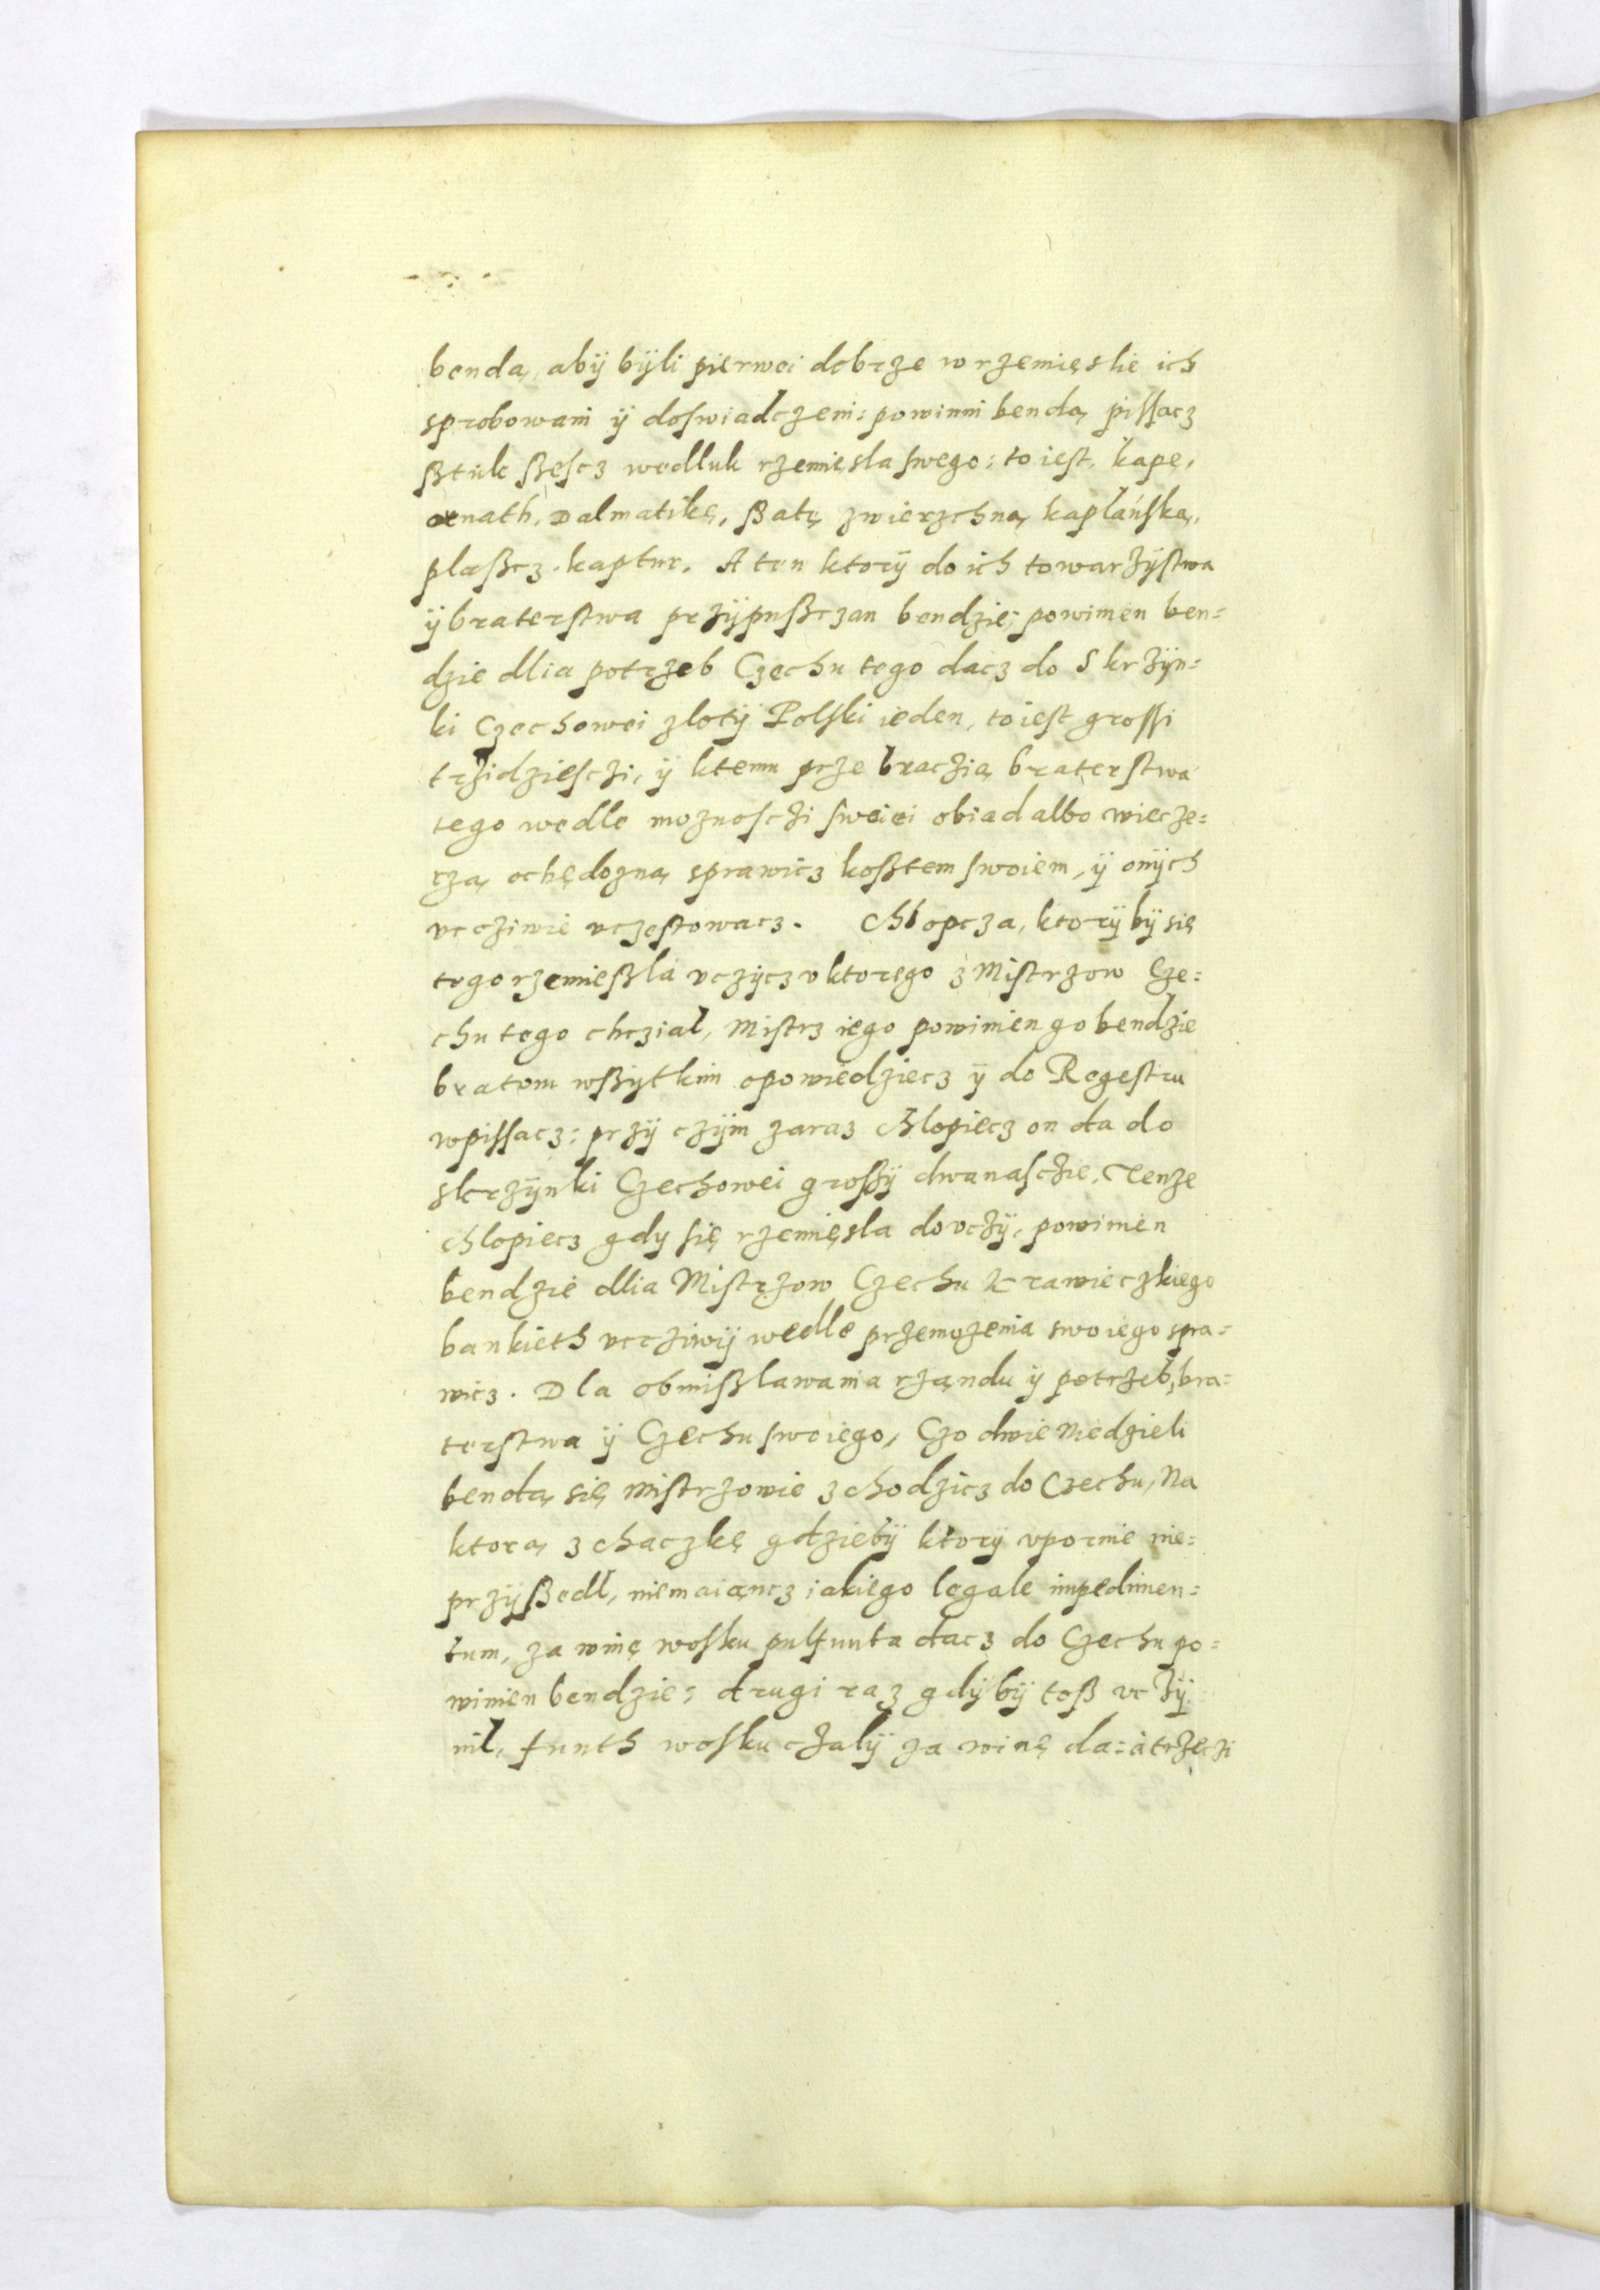 bendą, abÿ bÿli pierwei dobrze w rzemięslie ich
sprobowani ÿ doſwiadczeni: powinni bendą piſſacz
ßtuk ßeſcz wedluk rzemięsla ſwego: to ieſt, kapę,
ornath, Dalmatikę, ßatę zwierzchną kapłańſką,
plaßcz, kaptur. A ten ktorÿ do ich towarzÿſtwa
ÿ braterſtwa przÿpußczan bendzie; powinien ben=
dzie dlia potrzeb Czechu tego dacz do Skrzÿn=
ki Czechowei zlotÿ Polſki ieden, to ieſt groſſi
trzidzieſczi, ÿ ktemu prze braczią braterſtwa
tego wedle moznoſczi ſweiei obiad albo wiecze=
rzą ochędozną sprawicz koßtem ſwoiem, ÿ onÿch
vcziwie vczeſtowacz. Chlopcza, ktorÿ bÿ się
tego rzemießla vczÿcz v ktorego z Miſtrzow Cze=
chu tego chczial, Miſtrz iego powinien go bendzie
bratom wßÿtkim opowiedziecz ÿ do Regeſtru
wpiſſacz: przÿ czÿm zaraz Chlopiecz on da do
skrzÿnki Czechowei großÿ dwanaſczie, Tenze
chlopiecz gdy ſię rzemięsla dovczÿ, powinien
bendzie dlia Miſtrzow Czechu Krawieczkiego
bankieth vccziwÿ wedle przemozenia swoiego spra=
wicz. Dla obmißlawania rządu ÿ potrzeb, bra=
terſtwa ÿ Czechu ſwoiego, Czo dwie Niedzieli
bendą się Miſtrzowie zchodzicz do Czechu, Na
ktorą zchaczkę gdziebÿ ktorÿ vpornie nie=
przÿßedl, niemaiąncz iakiego legale impedimen=
tum, za winę woſku pulfunta dacz do Czechu po=
winien bendzie; drugi raz gdÿbÿ toß vczÿ
nil, funth woſku czalÿ za winę da: a trzeczi